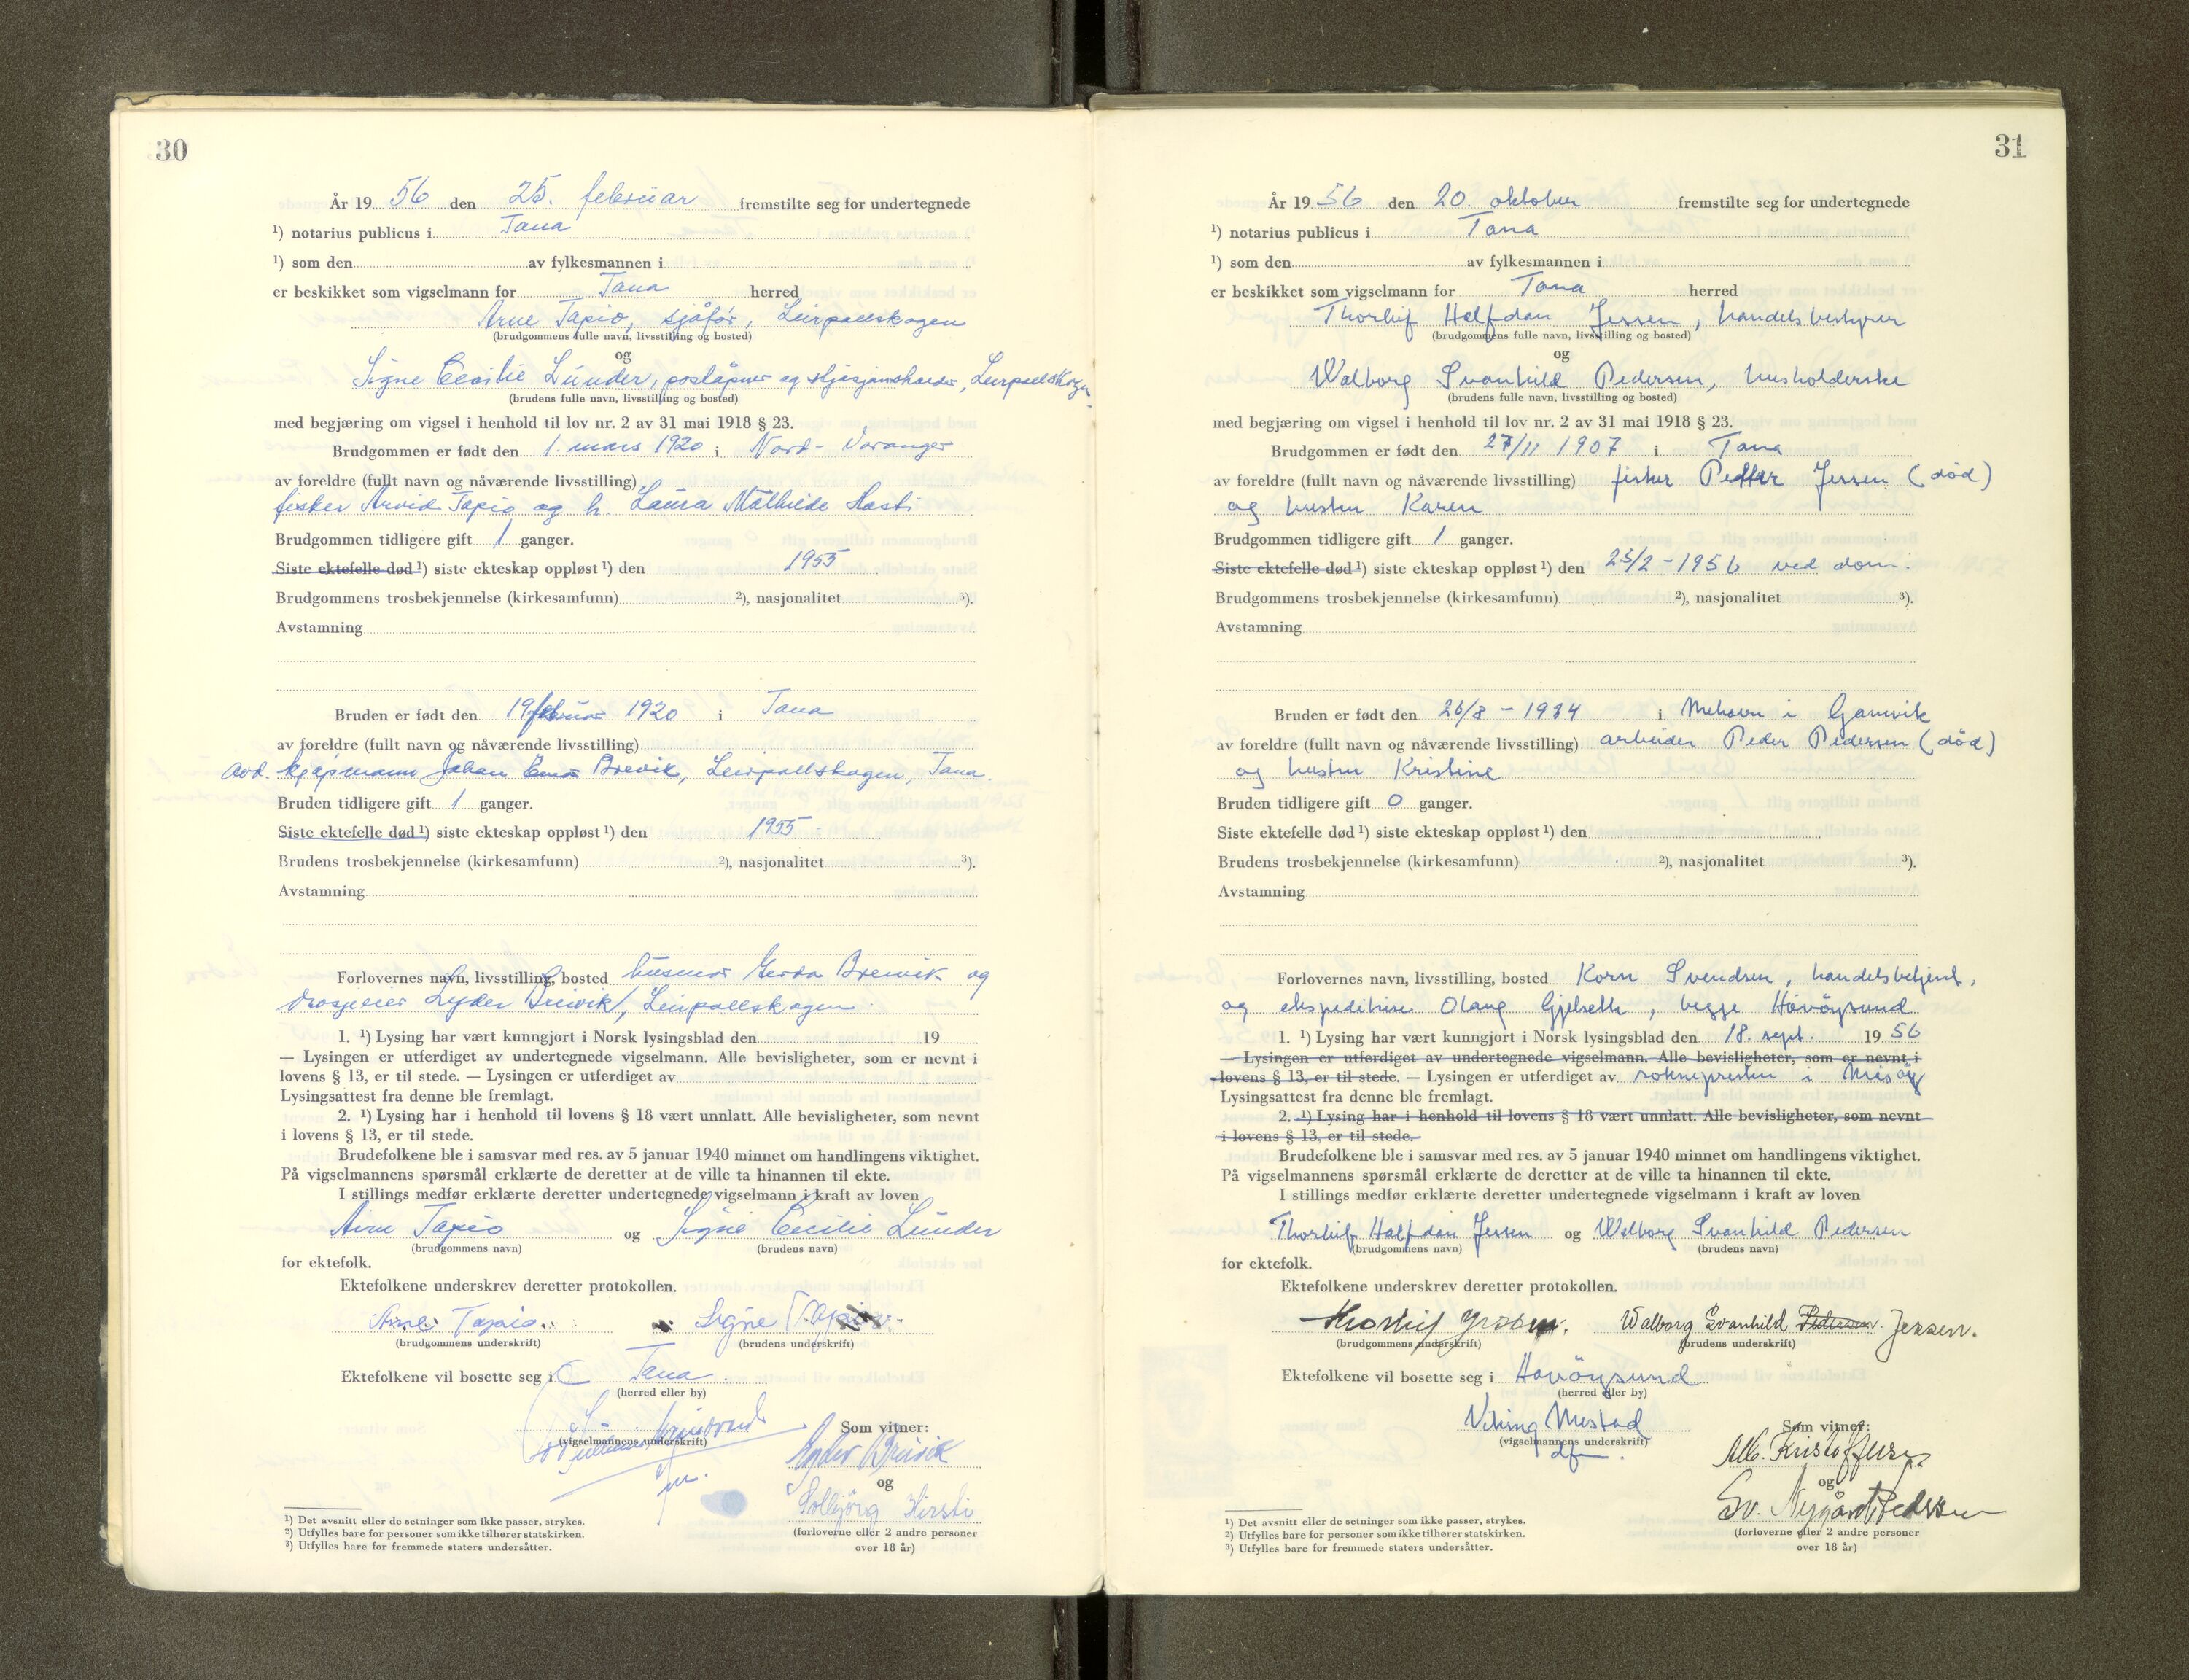 30
År 19 56 den 25. februar fremstilte seg for undertegnede
¹) notarius publicus i Tana
¹) som den av fylkesmannen i
er beskikket som vigselmann for Tana herred
Arne Tapio, sjåfør, Leirpollskogen
(brudgommens fulle navn, livsstilling og bosted)
og
Signe Cecilie Lunder, poståpner og stasjonsholder, Leirpollskogen
(brudens fulle navn, livsstilling og bosted)
med begjæring om vigsel i henhold til lov nr. 2 av 31 mai 1918 § 23.
Brudgommen er født den 1. mars 1920 i Nord-Varanger
av foreldre (fullt navn og nåværende livsstilling)
fisker Arvid Tapio og h. Laura Mathilde Hasti
Brudgommen tidligere gift 1 ganger.
Siste ektefelle død¹) siste ekteskap oppløst¹) den 1955
Brudgommens trosbekjennelse (kirkesamfunn) ²), nasjonalitet ³).
Avstamning
Bruden er født den 19 februar 1920 i Tana
av foreldre (fullt navn og nåværende livsstilling)
avd. kjøpmann Johan Brevik, Leirpollskogen, Tana.
Bruden tidligere gift 1 ganger.
Siste ektefelle død¹) siste ekteskap oppløst¹) den 1955
Brudens trosbekjennelse (kirkesamfunn) ²), nasjonalitet ³).
Avstamning
Forlovernes navn, livsstilling, bosted husmor Gerda Breivik og
drosjeeier Lyder Breivik, Leirpollskogen
1. ¹) Lysing har vært kunngjort i Norsk lysingsblad den 19
— Lysingen er utferdiget av undertegnede vigselmann. Alle bevisligheter, som er nevnt i
lovens § 13, er til stede. — Lysingen er utferdiget av
Lysingsattest fra denne ble fremlagt.
2. ¹) Lysing har i henhold til lovens § 18 vært unnlatt. Alle bevisligheter, som nevnt
i lovens § 13, er til stede.
Brudefolkene ble i samsvar med res. av 5 januar 1940 minnet om handlingens viktighet.
På vigselmannens spørsmål erklærte de deretter at de ville ta hinannen til ekte.
I stillings medfør erklærte deretter undertegnede vigselmann i kraft av loven
Arne Tapio og Signe Cecilie Lunder
(brudgommens navn) (brudens navn)
for ektefolk.
Ektefolkene underskrev deretter protokollen.
Arne Tapio Signe Tapio
(brudgommens underskrift) (brudens underskrift)
Ektefolkene vil bosette seg i Tana
(herred eller by)
(vigselmannens underskrift)
Som vitner:
Lyder Breivik
og
Solbjørg Hirsti
(forloverne eller 2 andre personer
over 18 år)
¹) Det avsnitt eller de setninger som ikke passer, strykes.
²) Utfylles bare for personer som ikke tilhører statskirken.
³) Utfylles bare for fremmede staters undersåtter.
31
År 19 56 den 20. oktober fremstilte seg for undertegnede
¹) notarius publicus i Tana
¹) som den av fylkesmannen i
er beskikket som vigselmann for Tana herred
Thorleif Halfdan Jessen, handelsbestyrer
(brudgommens fulle navn, livsstilling og bosted)
og
Walborg Svanhild Pedersen, husholderske
(brudens fulle navn, livsstilling og bosted)
med begjæring om vigsel i henhold til lov nr. 2 av 31 mai 1918 § 23.
Brudgommen er født den 27/11 1907 i Tana
av foreldre (fullt navn og nåværende livsstilling) fisker Petter Jessen (død)
og hustru Karen
Brudgommen tidligere gift 1 ganger.
Siste ektefelle død¹) siste ekteskap oppløst¹) den 25/2 - 1956 ved dom.
Brudgommens trosbekjennelse (kirkesamfunn) ²), nasjonalitet ³).
Avstamning
Bruden er født den 26/8 - 1934 i Mehavn i Gamvik
av foreldre (fullt navn og nåværende livsstilling) arbeider Peder Pedersen (død)
og hustru Kristine
Bruden tidligere gift 0 ganger.
Siste ektefelle død¹) siste ekteskap oppløst¹) den
Brudens trosbekjennelse (kirkesamfunn) ²), nasjonalitet ³).
Avstamning
Forlovernes navn, livsstilling, bosted Korn Svendsen, handelsbetjent,
og ekspeditrise Olaug Gjelseth, begge Havöysund
1. ¹) Lysing har vært kunngjort i Norsk lysingsblad den 18. sept. 19 56
— Lysingen er utferdiget av undertegnede vigselmann. Alle bevisligheter, som er nevnt i
lovens § 13, er til stede. — Lysingen er utferdiget av soknepresten i Måsöy
Lysingsattest fra denne ble fremlagt.
2. ¹) Lysing har i henhold til lovens § 18 vært unnlatt. Alle bevisligheter, som nevnt
i lovens § 13, er til stede.
Brudefolkene ble i samsvar med res. av 5 januar 1940 minnet om handlingens viktighet.
På vigselmannens spørsmål erklærte de deretter at de ville ta hinannen til ekte.
I stillings medfør erklærte deretter undertegnede vigselmann i kraft av loven
Thorleif Halfdan Jessen og Walborg Svanhild Pedersen
(brudgommens navn) (brudens navn)
for ektefolk.
Ektefolkene underskrev deretter protokollen.
Thorleif Jessen. Walborg Svanhild Pedersen. Jessen.
(brudgommens underskrift) (brudens underskrift)
Ektefolkene vil bosette seg i Havöysund
(herred eller by)
Viking Mestad
(vigselmannens underskrift)
dfm.
Som vitner:
Alb. Kristoffersen
og
Sv. Nygård Pedersen
(forloverne eller 2 andre personer
over 18 år)
¹) Det avsnitt eller de setninger som ikke passer, strykes.
²) Utfylles bare for personer som ikke tilhører statskirken.
³) Utfylles bare for fremmede staters undersåtter.